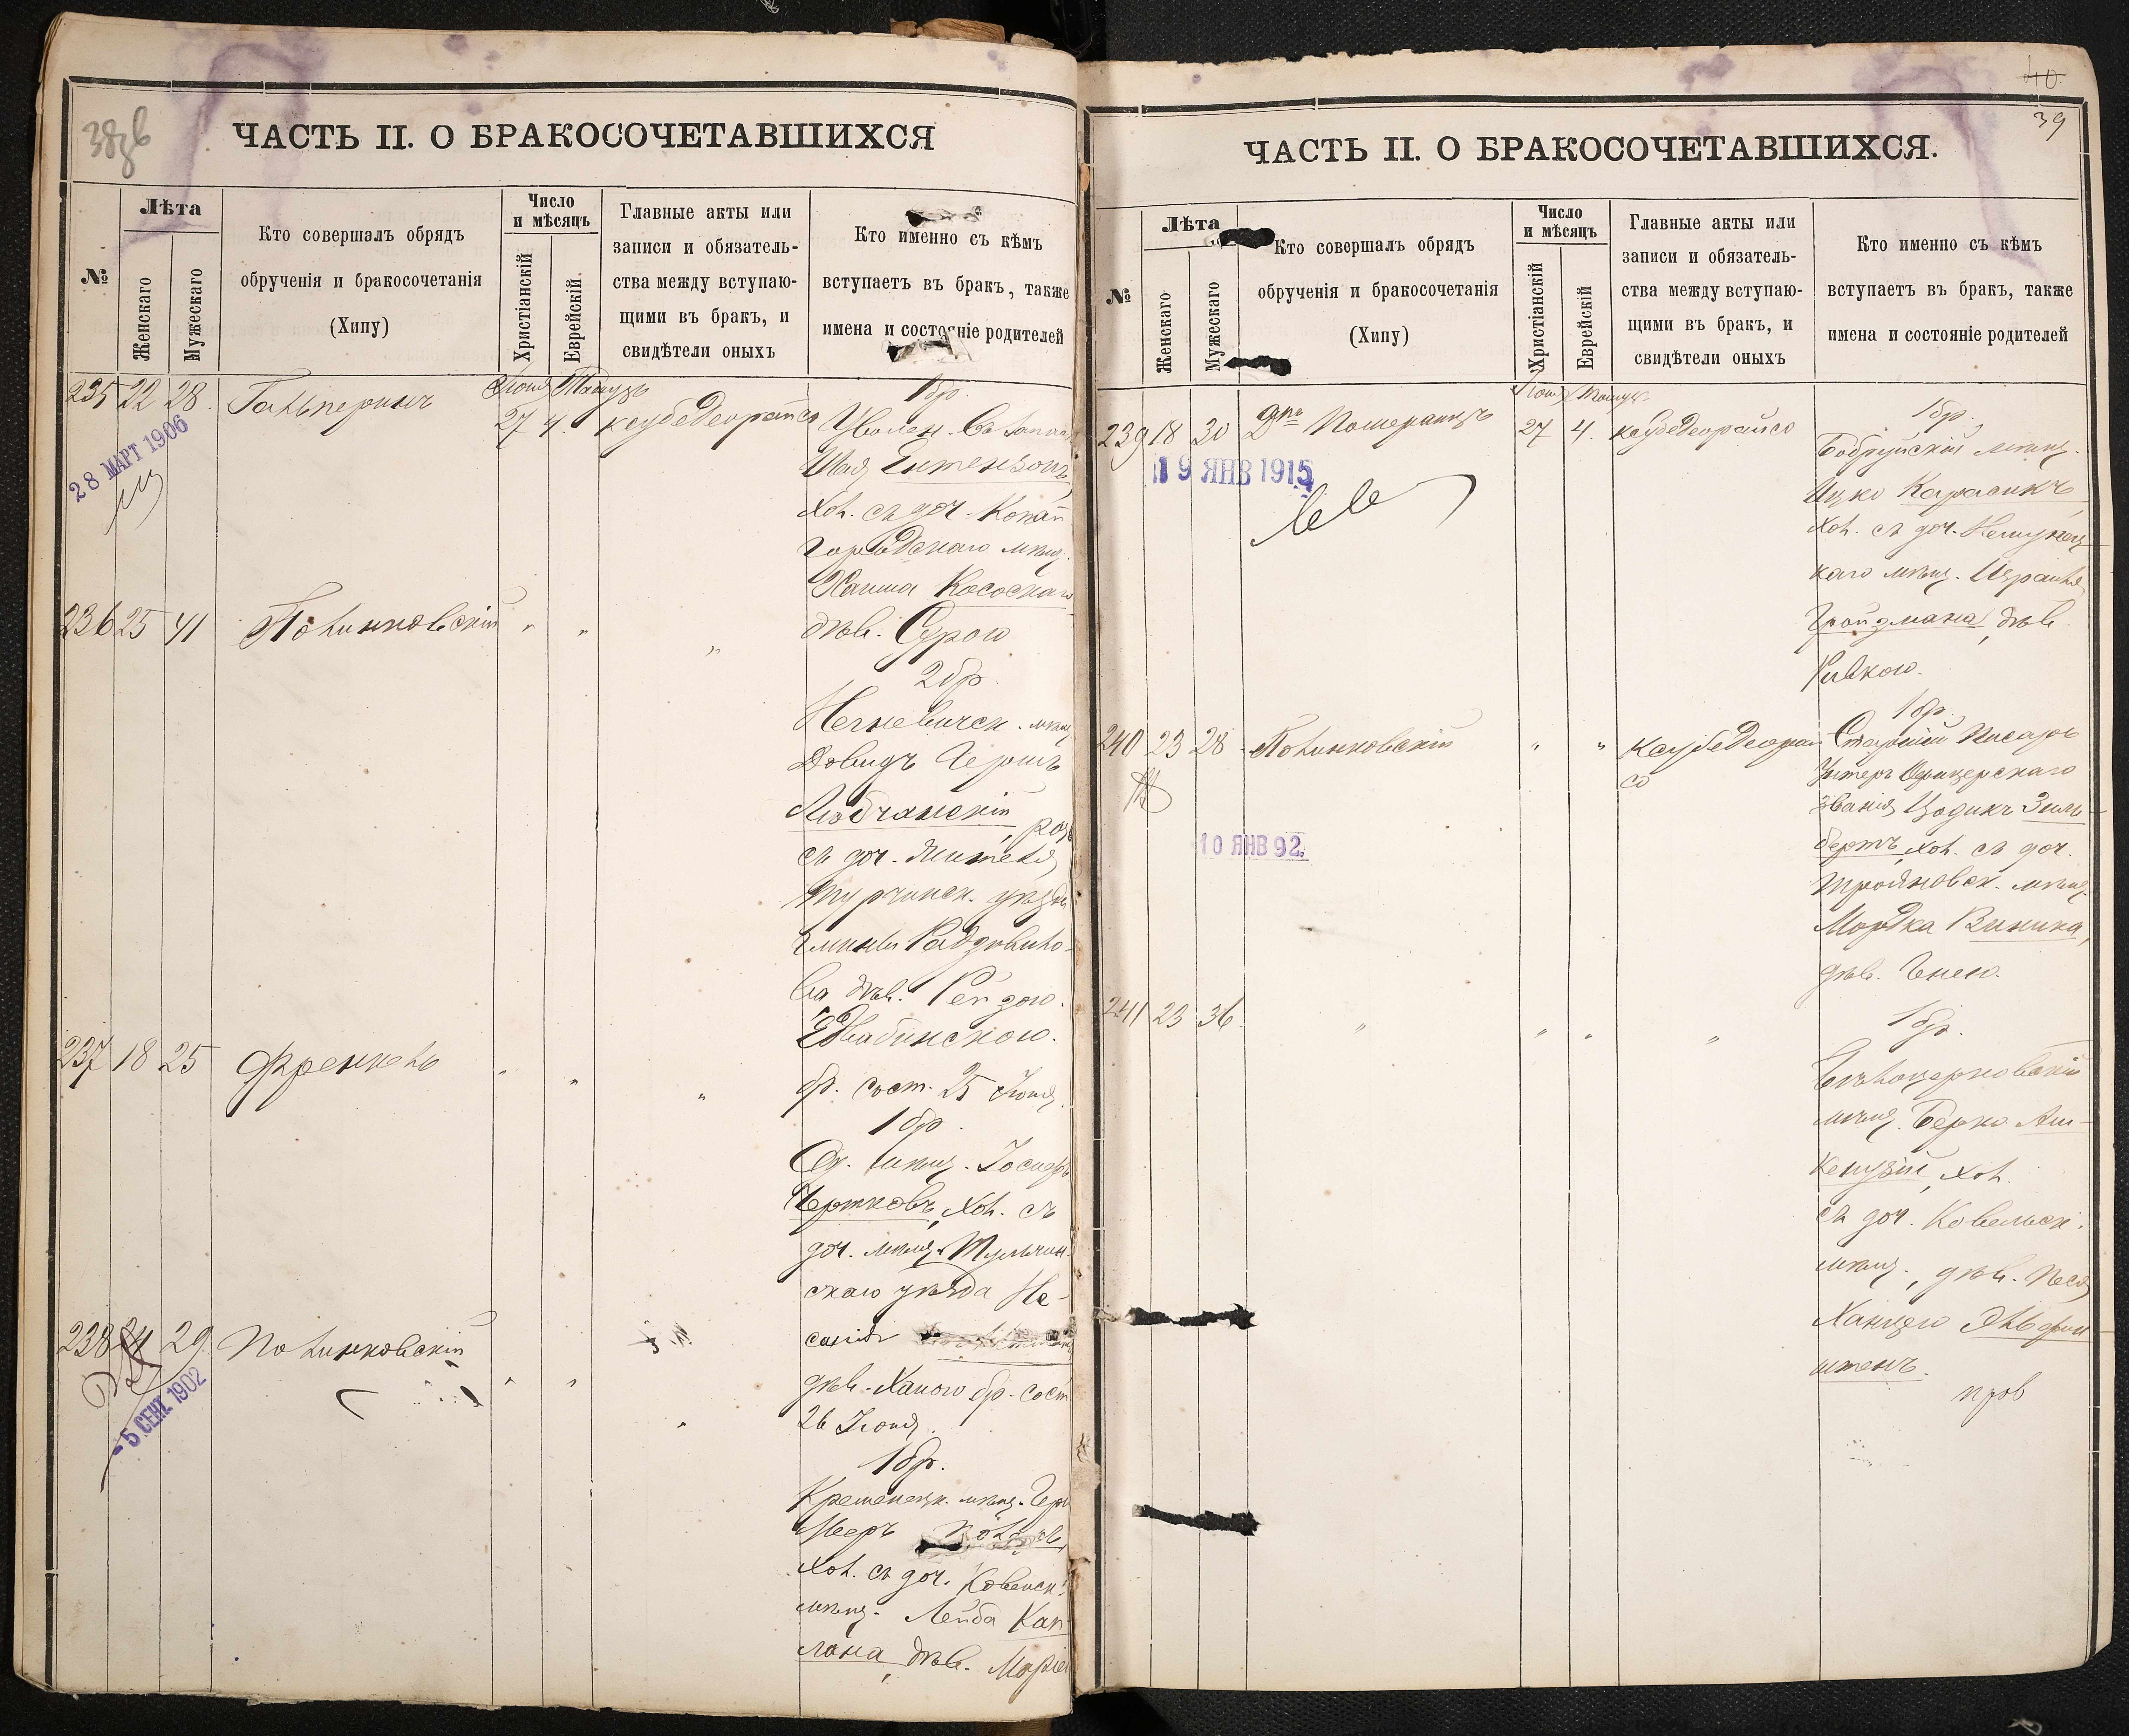 38об
ЧАСТЬ II. О БРАКОСОЧЕТАВШИХСЯ
№
Лѣта
Женскаго
Мужескаго
Кто совершалъ обрядъ
обрученія и бракосочетанія
(Хипу)
Число
и мѣсяцъ
Христіанскій
Еврейскій
Главные акты или
записи и обязатель-
ства между вступаю-
щими въ бракъ, и
свидѣтели оныхъ
Кто именно съ кѣмъ
вступаетъ въ бракъ, также
имена и состояніе родителей
235 22 28. Гальперинъ
Іюня Тамузъ
27 4. каубедеорайсо
1 бр.
Уволен. въ запас
хол. съ доч. Копай
городскаго мѣщ.
Хаима Кососкаго
дѣв. Сурою
28 МАРТ 1906
236 25 41 Полинковскій " " "
2 бр.
Несневичск. мѣщ.
Довидъ Гершъ
Любчанскій, раз.
съ доч. жителя
дѣв. Рейзою.
бр. сост. 25 Іюня.
237 18 25 Френкель " " "
1 бр.
Од. мѣщ. Іосифъ
Чертковъ, хол. съ
доч. мѣщ. Тульчин-
скаго уѣзда Не-
дѣв. Ханою бр. сост.
26 Іюня.
238 24 29. Полинковскій " " "
- 5 СЕНТ 1902
1 бр.
Кременецк. мѣщ. Герш
Мееръ
хол. съ доч. Ковенск.
мѣщ. Лейба Кап-
лана, дѣв. Маріей
40
39
ЧАСТЬ II. О БРАКОСОЧЕТАВШИХСЯ.
№
Лѣта
Женскаго
Мужескаго
Кто совершалъ обрядъ
обрученія и бракосочетанія
(Хипу)
Число
и мѣсяцъ
Христіанскій
Еврейскій
Главные акты или
записи и обязатель-
ства между вступаю-
щими въ бракъ, и
свидѣтели оныхъ
Кто именно съ кѣмъ
вступаетъ въ бракъ, также
имена и состояніе родителей
239 18 30 Дръ Померанцъ
Іюня Тамуз.
27 4. каубедеорайсо
19 ЯНВ 1915
1 бр.
Бобруйскій мѣщ.
Ицко Карасикъ
хол. съ доч. Немирец
каго мѣщ. Израиля
Гройзмана, дѣв.
Ривкою.
240 23 28 Полинковскій " " каубедеорай
со
10 ЯНВ 92.
1 бр.
Старшій Писарь
Унтеръ Офицерскаго
званія Цодикъ Зиль-
бертъ, хол. съ доч.
Трояновск. мѣщ.
Мордка Виника,
дѣв. Енею.
241 23 36 " " " "
1 бр.
Бѣлоцерковскій
мѣщ. Берко Аш-
кенузій, хол.
съ доч. Ковельск.
мѣщ., дѣв. Песя
Ханцею Эльфин
штенъ.
пров